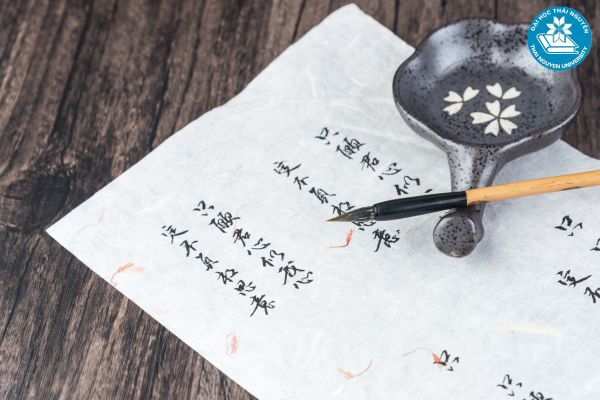 ĐẠI HỌC THÁI NGUYÊN
THAI NGUYEN UNIVERSITY
只
定不
只願君心似
定不負相思意
只願君心似我心
定不負相思意
只願
只